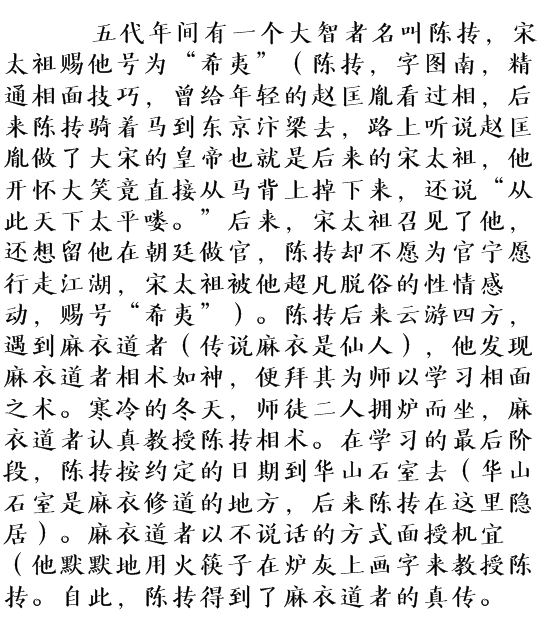 五代年间有一个大智者名叫陈抟，宋
太祖赐他号为“希夷”（陈抟，字图南，精
通相面技巧，曾给年轻的赵匡胤看过相，后
来陈抟骑着马到东京汴梁去，路上听说赵匡
胤做了大宋的皇帝也就是后来的宋太祖，他
开怀大笑竟直接从马背上掉下来，还说“从
此天下太平喽。”后来，宋太祖召见了他，
还想留他在朝廷做官，陈抟却不愿为官宁愿
行走江湖，宋太祖被他超凡脱俗的性情感
动，赐号“希夷”）。陈抟后来云游四方，
遇到麻衣道者（传说麻衣是仙人），他发现
麻衣道者相术如神，便拜其为师以学习相面
之术。寒冷的冬天，师徒二人拥炉而坐，麻
衣道者认真教授陈抟相术。在学习的最后阶
段，陈抟按约定的日期到华山石室去（华山
石室是麻衣修道的地方，后来陈抟在这里隐
居）。麻衣道者以不说话的方式面授机宜
（他默默地用火筷子在炉灰上画字来教授陈
抟。自此，陈抟得到了麻衣道者的真传。